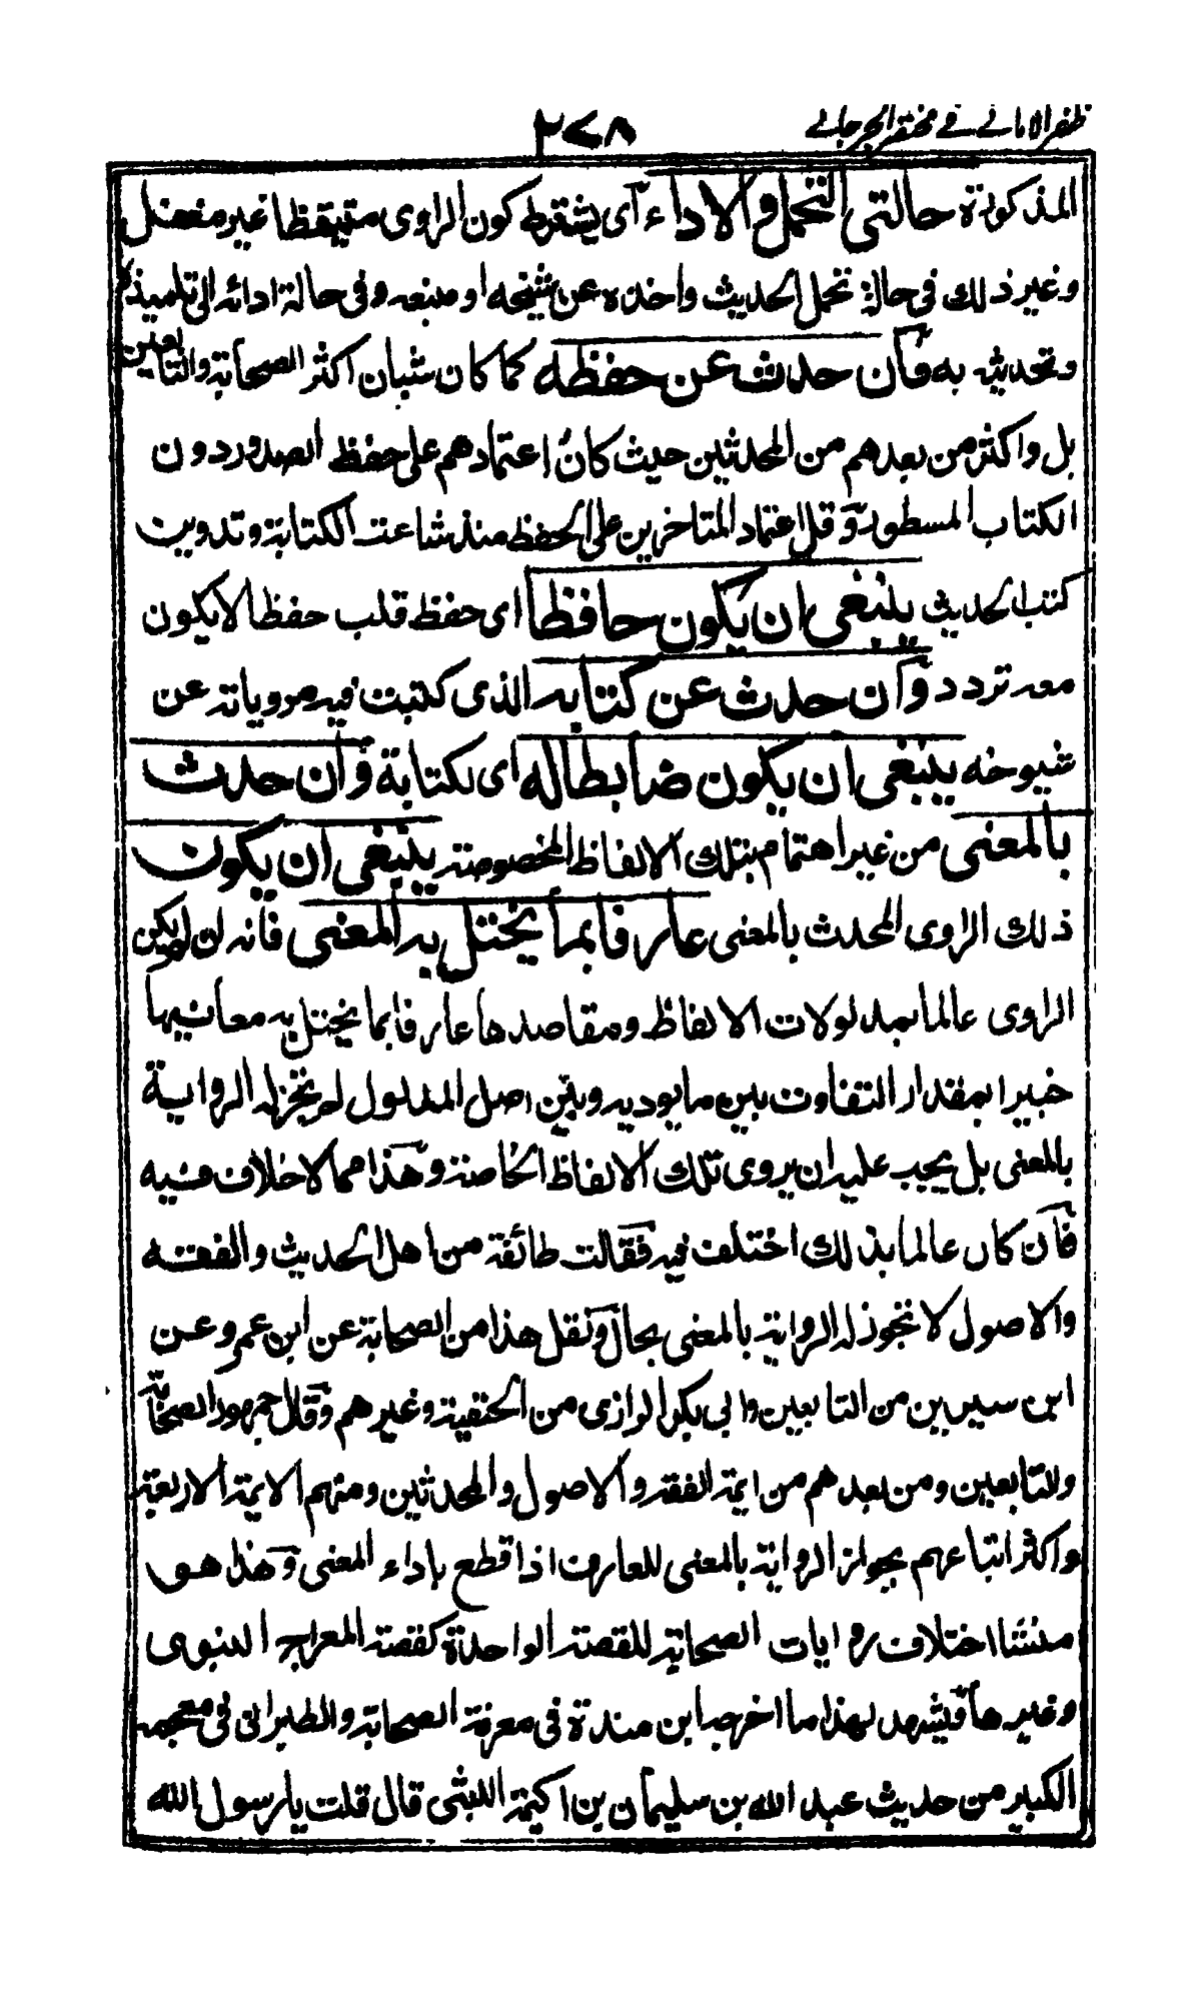 ظفر الامانے فے مختصر الجرجانے ٢٧٨
المذكورة حالتي التحمل والاداء اى يشترط كون الراوى متيقظا غير مغفل
وغير ذلك فى حالة تحمل الحديث واخذه عن شيخه او منبعه وفى حالة ادائه الى تلميذه
وتحديثه به فان حدث عن حفظه كما كان شان اكثر الصحابة والتابعين
بل واكثر من بعدهم من المحدثين حيث كان اعتمادهم على حفظ الصدور دون
الكتاب المسطور وقل اعتماد المتاخرين على الحفظ منذ شاعت الكتابة وتدوين
كتب الحديث ينبغى ان يكون حافظا اى حفظ قلب حفظا لا يكون
معه تردد وان حدث عن كتابه الذى كتبت فيه مروياته عن
شيوخه ينبغى ان يكون ضابطا له اى لكتابة وان حدث
بالمعنى من غير اهتمام بتلك الالفاظ المخصوصة ينبغى ان يكون
ذلك الراوى المحدث بالمعنى عارفا بما يختل به المعنى فانه ان لم يكن
الراوى عالما بمدلولات الالفاظ ومقاصدها عارفا بما يختل به معانيها
خبيرا بمقدار التفاوت بين ما يوديه وبين اصل المدلول لم تجز له الرواية
بالمعنى بل يجب عليه ان يروى تلك الالفاظ الخاصة وهذا مما لا خلاف فيه
فان كان عالما بذلك اختلف فيه فقالت طائفة من اهل الحديث والفقه
والاصول لا تجوز له الرواية بالمعنى بحال ونقل هذا من الصحابة عن ابن عمر وعن
ابن سيرين من التابعين وابى بكر الرازى من الحنفية وغيرهم وقال جمهور الصحابة
والتابعين ومن بعدهم من ايمة الفقه والاصول والمحدثين ومنهم الايمة الاربعة
واكثر اتباعهم بجواز الرواية بالمعنى للعارف اذا قطع باداء المعنى وهذا هو
منشا اختلاف روايات الصحابة للقصة الواحدة كقصة المعراج النبوى
وغيرها ويشهد لهذا ما اخرجه ابن مندة فى معرفة الصحابة والطبرانى فى معجمه
الكبير من حديث عبد الله بن سليمان بن اكيمة الليثى قال قلت يا رسول الله